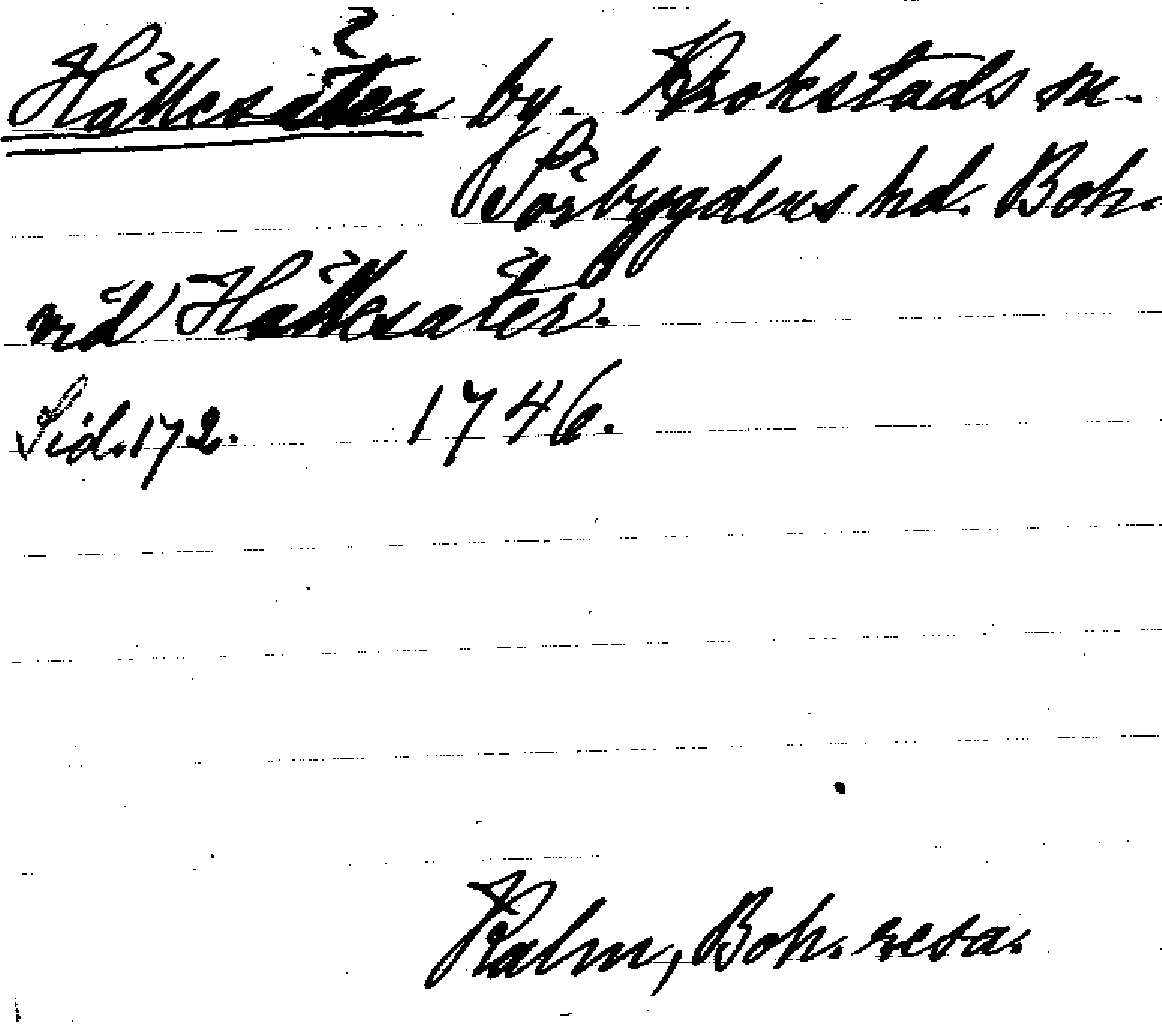 Hällesäter by. Krokstads sn.
Sörbygdens hd. Boh.
vid Hällesäter.
Sid. 172. 1746.
Kalm, Boh. resa.